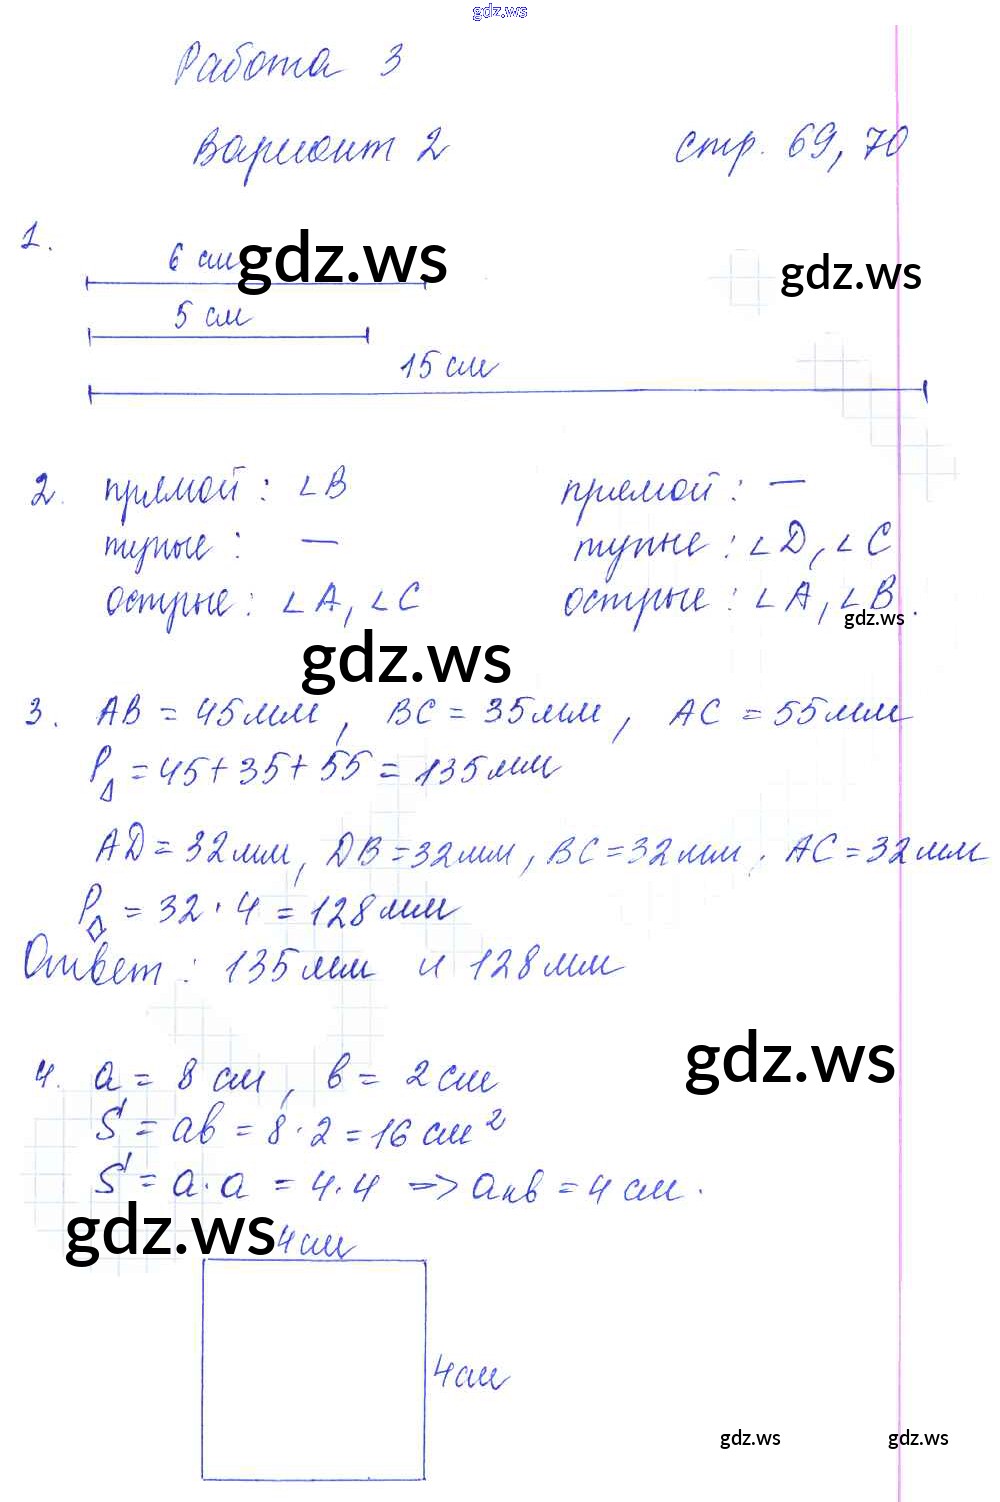 gdz.ws
Работа 3
Вариант 2 стр. 69, 70
1.
6 см gdz.ws
gdz.ws
5 см
15 см
2. прямой: ∠B прямой: —
тупые: — тупые: ∠D, ∠C
острые: ∠A, ∠C острые: ∠A, ∠B.
gdz.ws
gdz.ws
3. AB = 45 мм, BC = 35 мм, AC = 55 мм
P△ = 45 + 35 + 55 = 135 мм
AD = 32 мм, DB = 32 мм, BC = 32 мм, AC = 32 мм
P◇ = 32 · 4 = 128 мм
Ответ: 135 мм и 128 мм
gdz.ws
4. a = 8 см, в = 2 см
S = ав = 8 · 2 = 16 см²
S = a · a = 4 · 4 => aкв = 4 см.
gdz.ws
4 см
4 см
gdz.ws gdz.ws